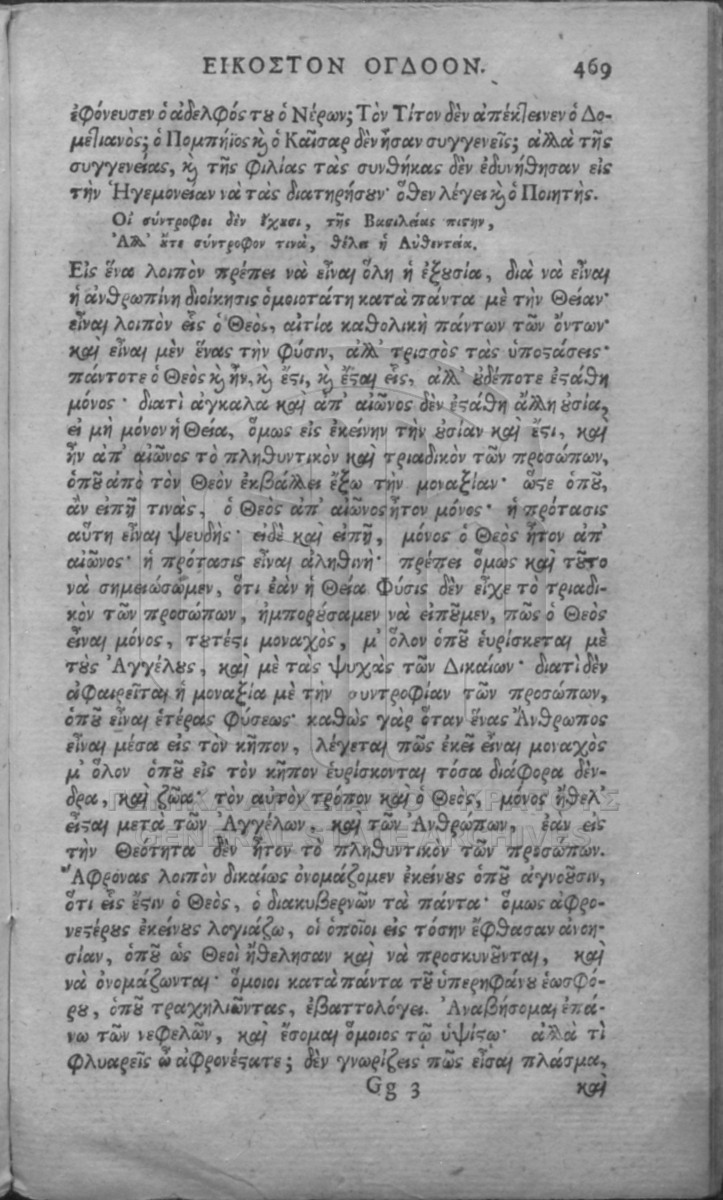 ΕΙΚΟΣΤΟΝ ΟΓΔΟΟΝ. 469
ἐφόνευσεν ὁ ἀδελφός του ὁ Νέρων; Τὸν Τίτον δὲν ἀπέκτεινεν ὁ Δο-
μετιανὸς; ὁ Πομπήϊος καὶ ὁ Καῖσαρ δὲν ἦσαν συγγενεῖς; ἀλλὰ τῆς
συγγενείας, καὶ τῆς φιλίας τὰς συνθήκας δὲν ἐδυνήθησαν εἰς
τὴν Ἡγεμονείαν νὰ τὰς διατηρήσουν· ὅθεν λέγει καὶ ὁ Ποιητής.
Οἱ σύντροφοι δὲν ἔχουσι, τῆς Βασιλείας πίστην,
Ἀλλ' οὔτε σύντροφον τινὰ, θέλει ἡ Αὐθεντεία.
Εἰς ἕνα λοιπὸν πρέπει νὰ εἶναι ὅλη ἡ ἐξουσία, διὰ νὰ εἶναι
ἡ ἀνθρωπίνη διοίκησις ὁμοιοτάτη κατὰ πάντα μὲ τὴν Θείαν·
εἶναι λοιπὸν εἷς ὁ Θεὸς, αἰτία καθολικὴ πάντων τῶν ὄντων·
καὶ εἶναι μὲν ἕνας τὴν φύσιν, ἀλλ' τρισσὸς τὰς ὑποστάσεις·
πάντοτε ὁ Θεὸς καὶ ἦν, καὶ ἔστι, καὶ ἔσται εἷς, ἀλλ' οὐδέποτε ἐστάθη
μόνος· διατὶ ἀγκαλα καὶ ἀπ' αἰῶνος δὲν ἐστάθη ἄλλη οὐσία,
εἰ μὴ μόνον ἡ Θεία, ὅμως εἰς ἐκείνην τὴν οὐσίαν καὶ ἔστι, καὶ
ἦν ἀπ' αἰῶνος τὸ πληθυντικὸν καὶ τριαδικὸν τῶν προσώπων,
ὁποῦ ἀπὸ τὸν Θεὸν ἐκβάλλει ἔξω τὴν μοναξίαν· ὥστε ὁποῦ,
ἂν εἰπῇ τινὰς, ὁ Θεὸς ἀπ' αἰῶνος ἦτον μόνος· ἡ πρότασις
αὕτη εἶναι ψευδής· εἰδὲ καὶ εἰπῇ, μόνος ὁ Θεὸς ἦτον ἀπ'
αἰῶνος· ἡ πρότασις εἶναι ἀληθινὴ· πρέπει ὅμως καὶ τοῦτο
νὰ σημειώσωμεν, ὅτι ἐὰν ἡ Θεία Φύσις δὲν εἶχε τὸ τριαδι-
κὸν τῶν προσώπων, ἠμπορούσαμεν νὰ εἰποῦμεν, πῶς ὁ Θεὸς
εἶναι μόνος, τουτέστι μοναχὸς, μ' ὅλον ὁποῦ εὑρίσκεται μὲ
τοὺς Ἀγγέλους, καὶ μὲ τὰς ψυχὰς τῶν Δικαίων· διατὶ δὲν
ἀφαιρεῖται ἡ μοναξία μὲ τὴν συντροφίαν τῶν προσώπων,
ὁποῦ εἶναι ἑτέρας φύσεως· καθὼς γὰρ ὅταν ἕνας Ἄνθρωπος
εἶναι μέσα εἰς τὸν κῆπον, λέγεται πῶς ἐκεῖ εἶναι μοναχὸς
μ' ὅλον ὁποῦ εἰς τὸν κῆπον εὑρίσκονται τόσα διάφορα δέν-
δρα, καὶ ζῶα· τὸν αὐτὸν τρόπον καὶ ὁ Θεὸς, μόνος ἤθελ'
εἶσται μετὰ τῶν Ἀγγέλων, καὶ τῶν Ἀνθρώπων, ἐὰν εἰς
τὴν Θεότητα δὲν ἦτον τὸ πληθυντικὸν τῶν προσώπων.
Ἄφρονας λοιπὸν δικαίως ὀνομάζομεν ἐκείνους ὁποῦ ἀγνοοῦσιν,
ὅτι εἷς ἔστιν ὁ Θεὸς, ὁ διακυβερνῶν τὰ πάντα· ὅμως ἀφρο-
νεστέρους ἐκείνους λογιάζω, οἱ ὁποῖοι εἰς τόσην ἔφθασαν ἀνοη-
σίαν, ὁποῦ ὡς Θεοὶ ἠθέλησαν καὶ νὰ προσκυνοῦνται, καὶ
νὰ ὀνομάζωνται· ὅμοιοι κατὰ πάντα τοῦ ὑπερηφάνου ἑωσφό-
ρου, ὁποῦ τραχηλιῶντας, ἐβαττολόγει. Ἀναβήσομαι ἐπά-
νω τῶν νεφελῶν, καὶ ἔσομαι ὅμοιος τῷ ὑψίστῳ· ἀλλὰ τὶ
φλυαρεῖς ὦ ἀφρονέστατε; δὲν γνωρίζεις πῶς εἶσαι πλάσμα,
Gg 3 καὶ